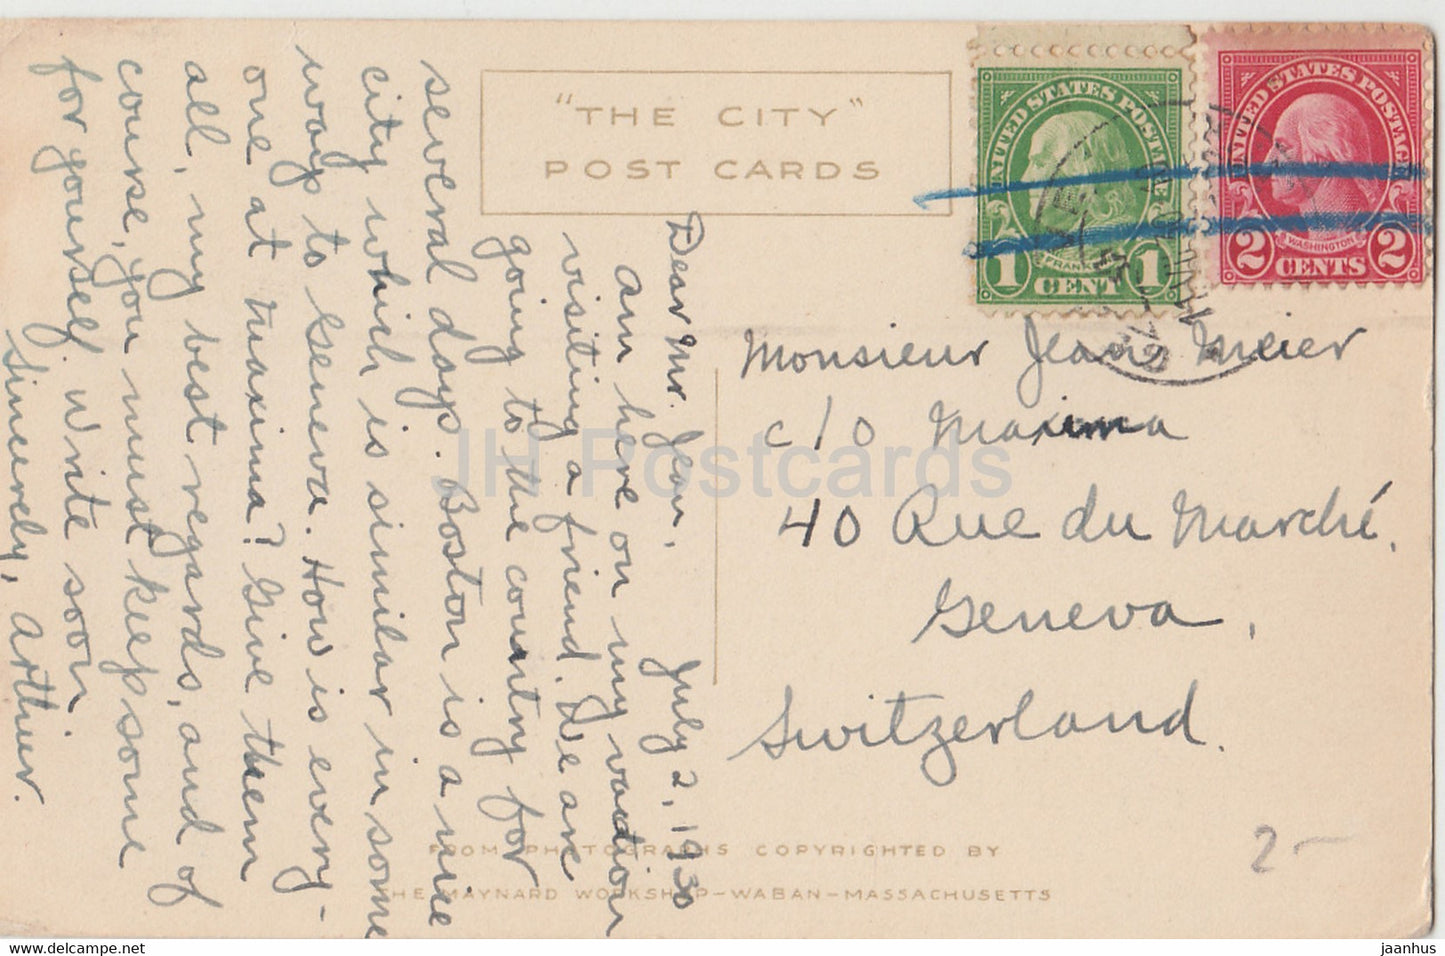 "THE CITY"
POST CARDS
UNITED STATES POSTAGE
FRANKLIN
1 CENT 1
UNITED STATES POSTAGE
WASHINGTON
2 CENTS 2
July 2, 1930
Dear Mr. Jean,
Am here on my vacation
visiting a friend. We are
going to the country for
several days. Boston is a nice
city which is similar in some
ways to Geneva. How is every-
one at Maxima? Give them
all, my best regards, and of
course, you must keep some
for yourself. Write soon
Sincerely, Arthur.
Monsieur Jean Meier
c/o Maxima
40 Rue du Marché,
Geneva,
Switzerland.
2-
FROM PHOTOGRAPHS COPYRIGHTED BY
THE MAYNARD WORKSHOP-WABAN-MASSACHUSETTS
JH Postcards
www.hippostcard.com
jaanhus